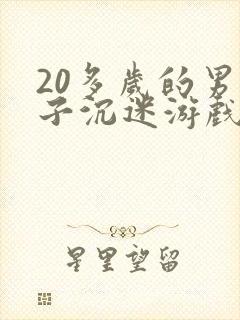 20多歲的男
子沉迷游戲
星里望留